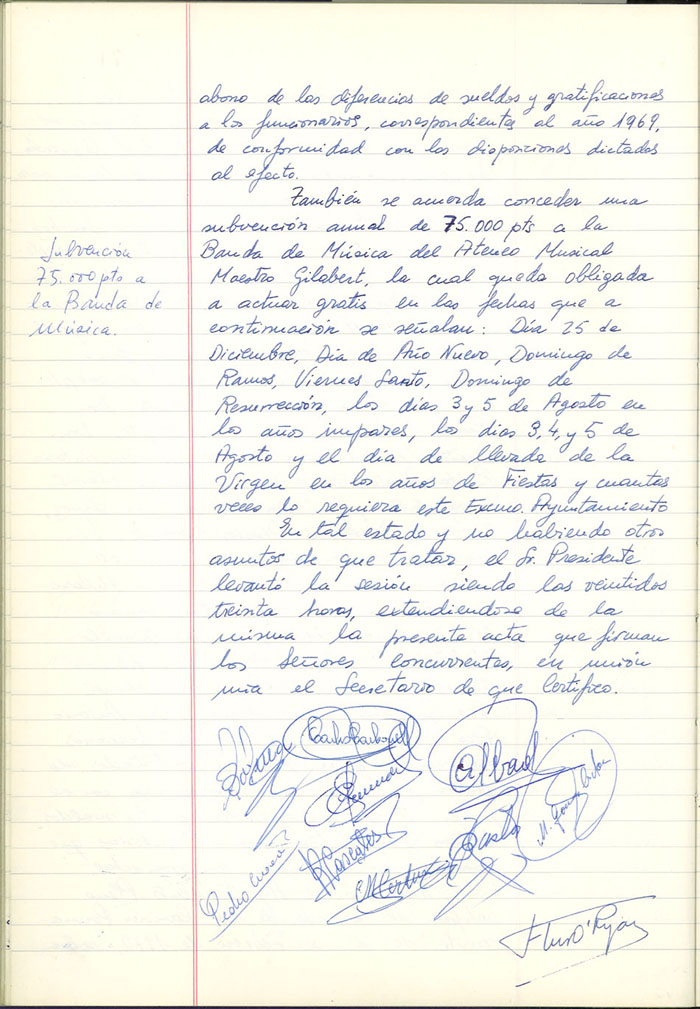 abono de las diferencias de sueldos y gratificaciones
a los funcionarios, correspondientes al año 1969,
de conformidad con las disposiciones dictadas
al efecto.
También se acuerda conceder una
subvención anual de 75.000 pts a la
Banda de Música del Ateneo Musical
Maestro Gilabert, la cual queda obligada
a actuar gratis en las fechas que a
continuación se señalan: Día 25 de
Diciembre, Día de Año Nuevo, Domingo de
Ramos, Viernes Santo, Domingo de
Resurrección, los días 3 y 5 de Agosto en
los años impares, los dias 3, 4, y 5 de
Agosto y el día de llevada de la
Virgen en los años de Fiestas y cuantas
veces lo requiera este Excmo. Ayuntamiento
En tal estado y no habiendo otros
asuntos de que tratar, el Sr. Presidente
levantó la sesión siendo las veintidos
treinta horas, extendiendose de la
misma la presente acta que firman
los Señores concurrentes, en unión
mia el Secretario de que Certifico.
Subvención
75.000 pts a
la Banda de
Música.
Carlos Carbonell
Abad
Pedro